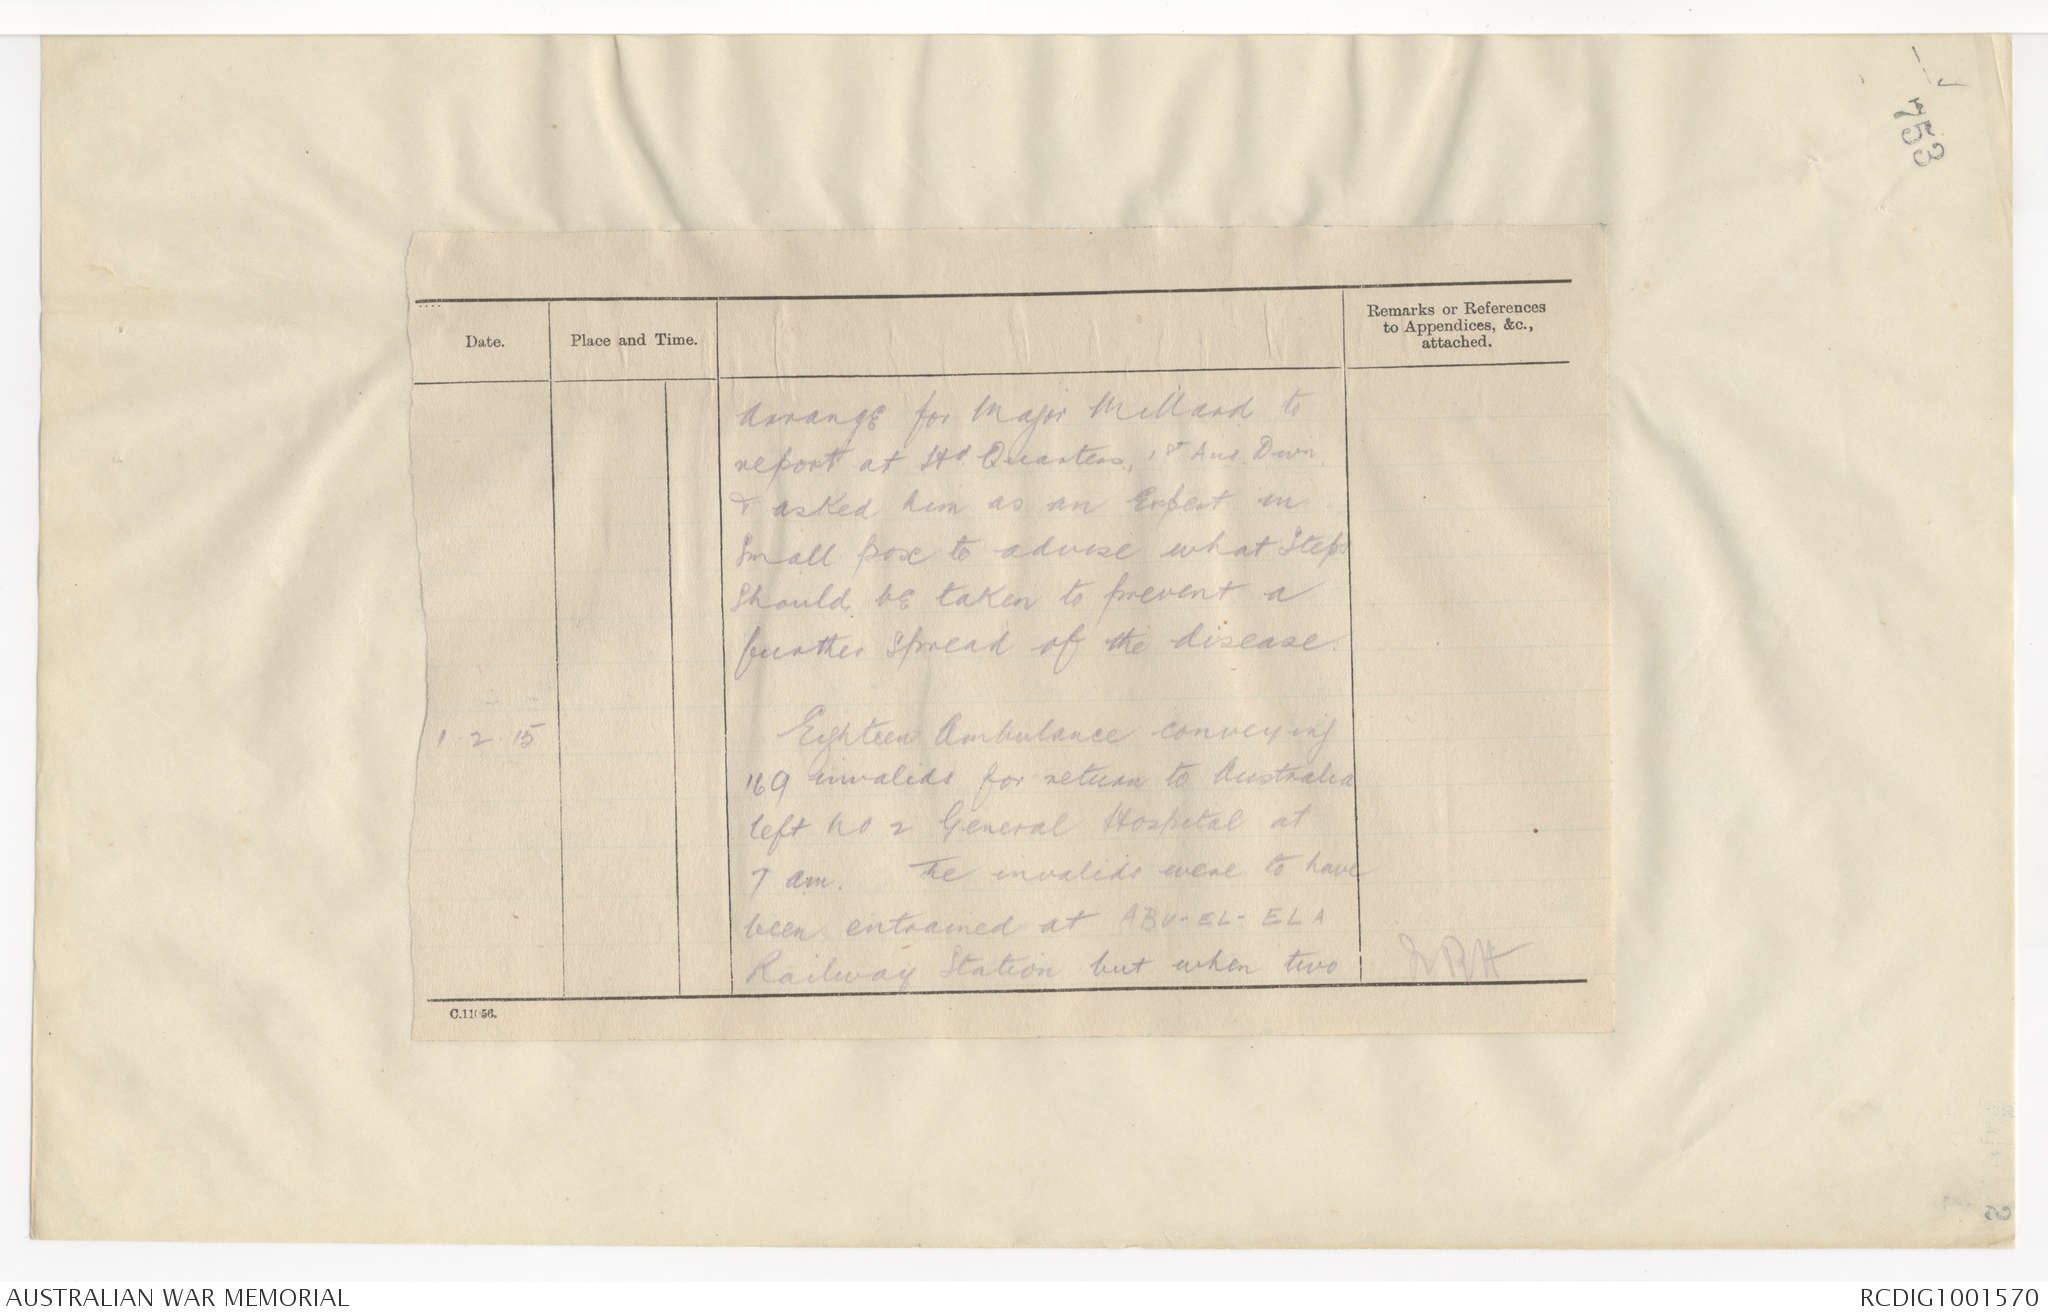 753
Date.
Place and Time.
Remarks or References
to Appendices, &c.,
attached.
arrange for Major Millard to
report at Hd Quarters, 1st Aus. Divn.
& asked him as an Expert in
Small pox to advise what Steps
Should be taken to prevent a
further Spread of the disease.
1.2.15
Eighteen Ambulance conveying
169 invalids for return to Australia
left No 2 General Hospital at
7 am. The invalids were to have
been entrained at ABU-EL-ELA
Railway Station but when two
C.11056.
AUSTRALIAN WAR MEMORIAL
RCDIG1001570